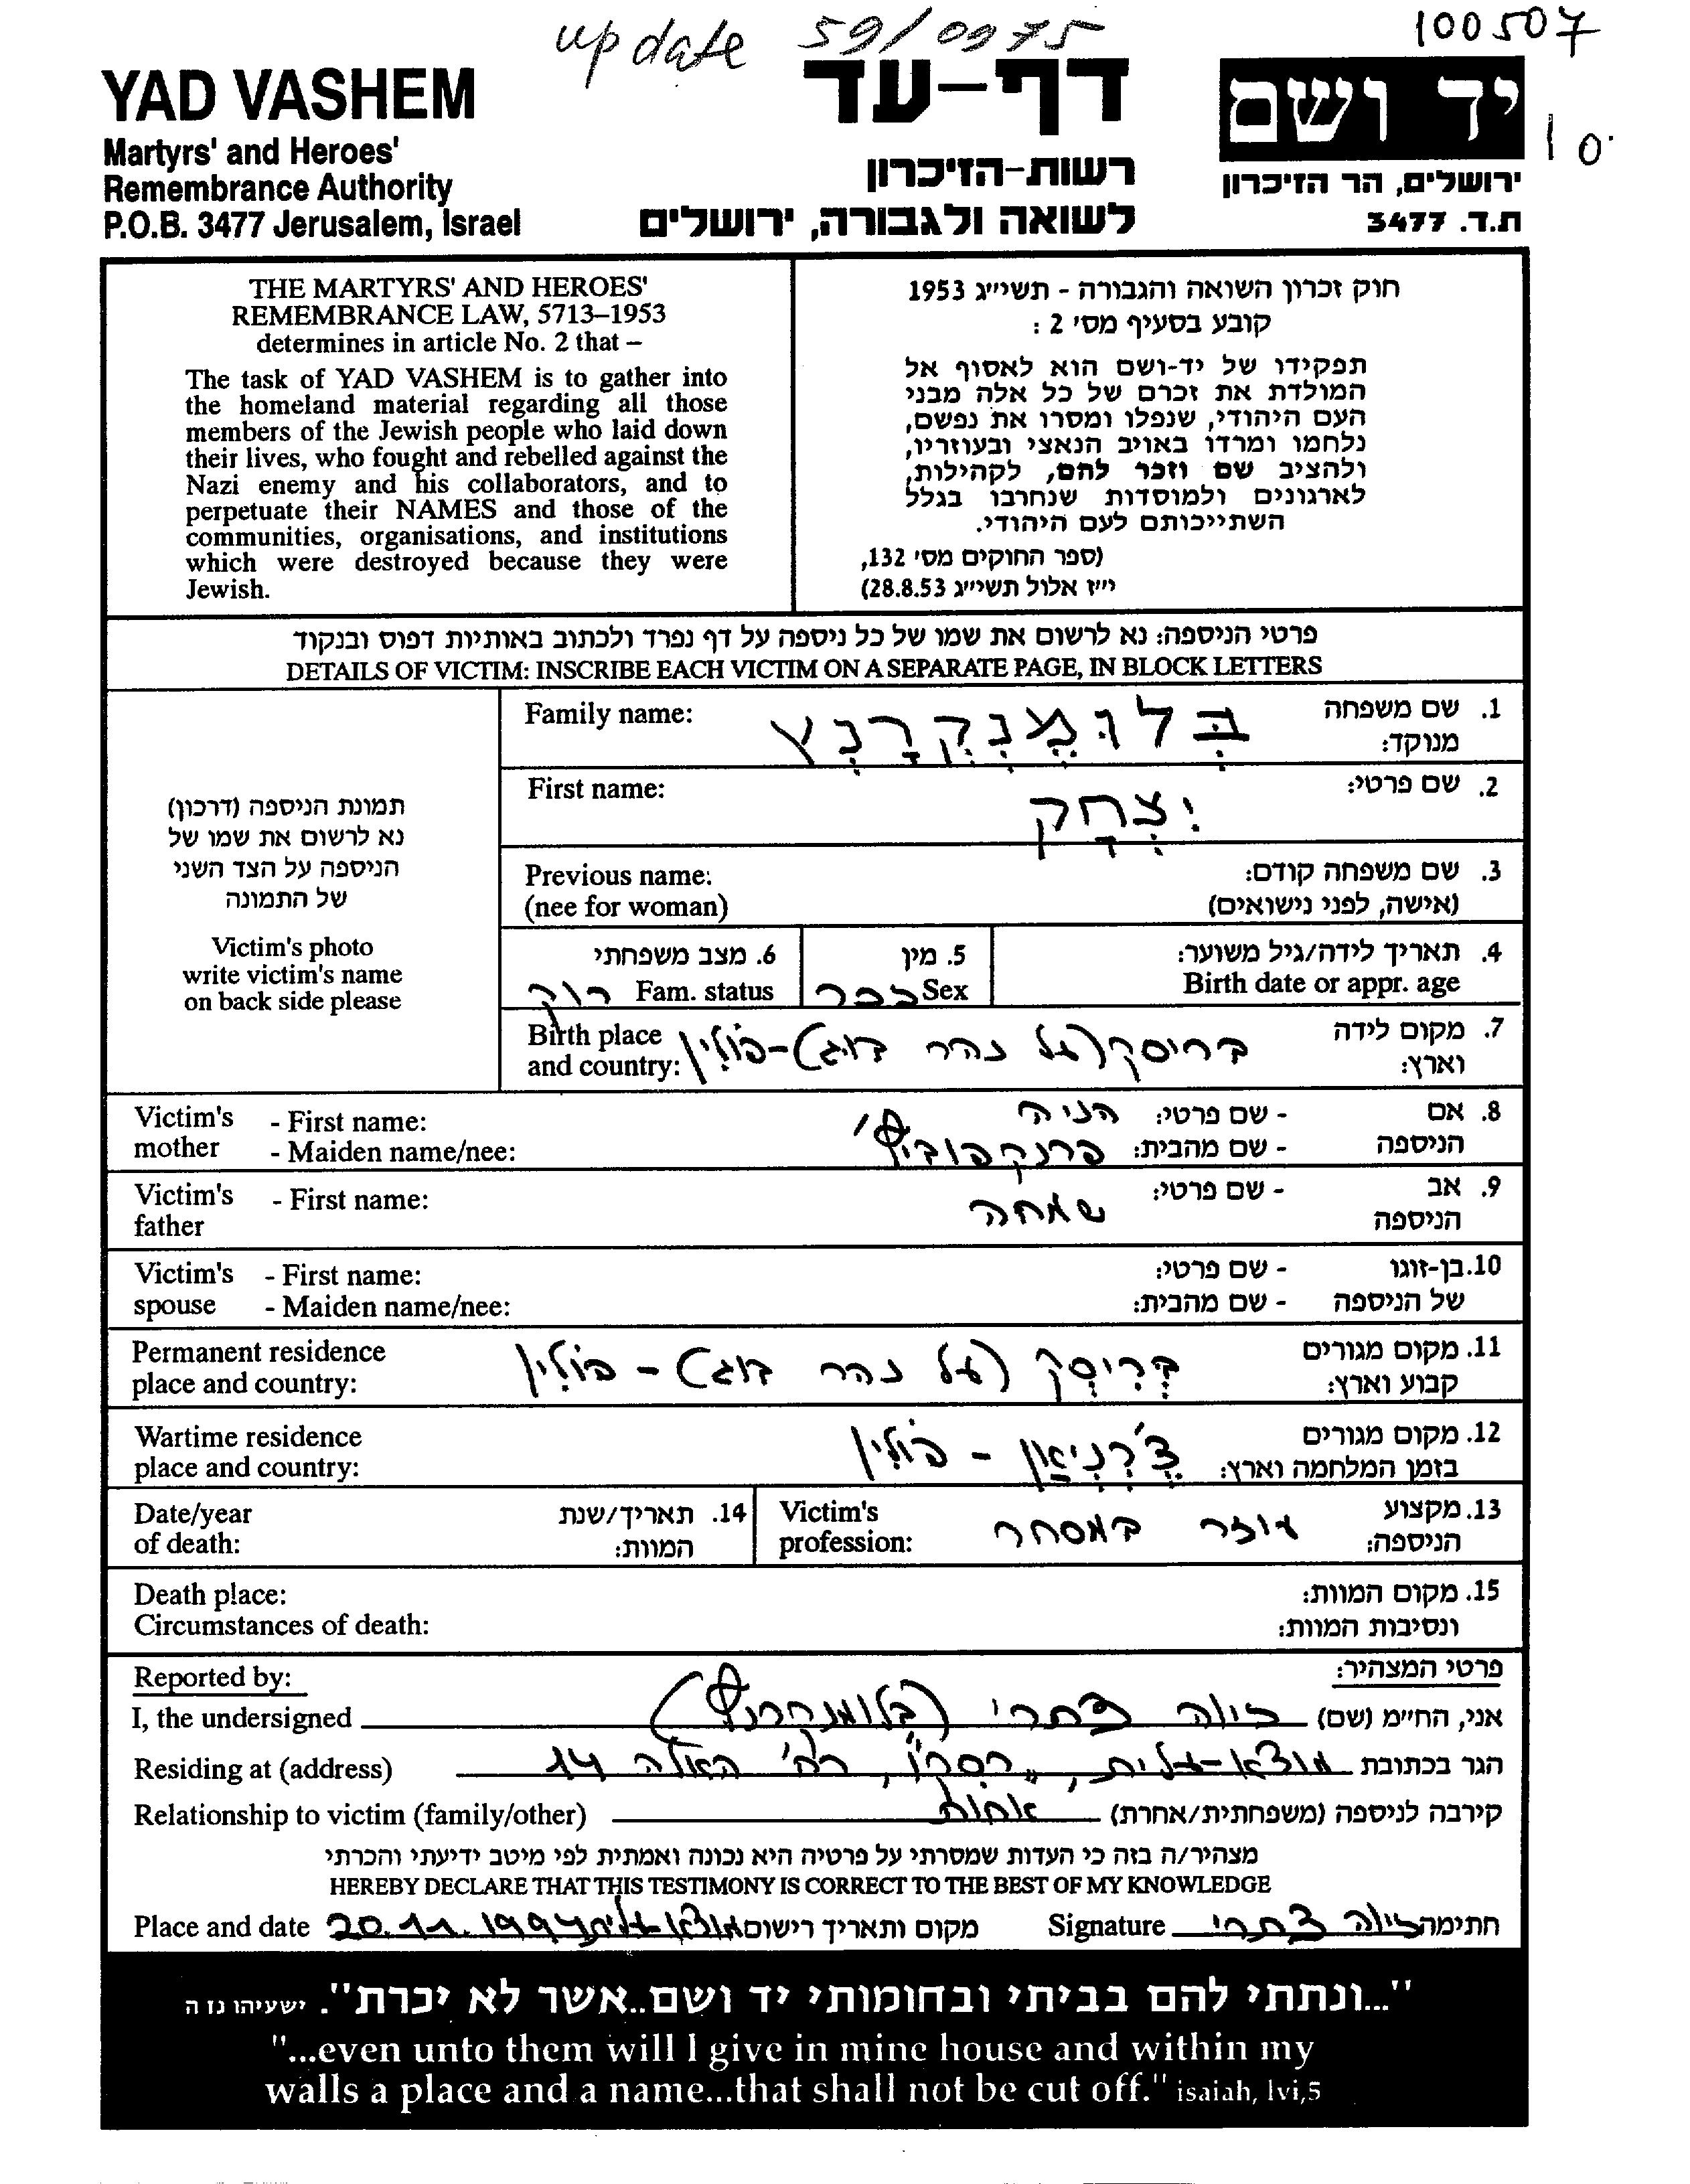 update 59/0975
100507
YAD VASHEM
דף-עד
יד ושם
10
Martyrs' and Heroes'
Remembrance Authority
P.O.B. 3477 Jerusalem, Israel
רשות-הזיכרון
לשואה ולגבורה, ירושלים
ירושלים, הר הזיכרון
ת.ד. 3477
THE MARTYRS' AND HEROES'
REMEMBRANCE LAW, 5713–1953
determines in article No. 2 that –
The task of YAD VASHEM is to gather into
the homeland material regarding all those
members of the Jewish people who laid down
their lives, who fought and rebelled against the
Nazi enemy and his collaborators, and to
perpetuate their NAMES and those of the
communities, organisations, and institutions
which were destroyed because they were
Jewish.
חוק זכרון השואה והגבורה - תשי״ג 1953
קובע בסעיף מס׳ 2 :
תפקידו של יד-ושם הוא לאסוף אל
המולדת את זכרם של כל אלה מבני
העם היהודי, שנפלו ומסרו את נפשם,
נלחמו ומרדו באויב הנאצי ובעוזריו,
ולהציב שם וזכר להם, לקהילות,
לארגונים ולמוסדות שנחרבו בגלל
השתייכותם לעם היהודי.
(ספר החוקים מס׳ 132,
י״ז אלול תשי״ג 28.8.53)
פרטי הניספה: נא לרשום את שמו של כל ניספה על דף נפרד ולכתוב באותיות דפוס ובנקוד
DETAILS OF VICTIM: INSCRIBE EACH VICTIM ON A SEPARATE PAGE, IN BLOCK LETTERS
תמונת הניספה (דרכון)
נא לרשום את שמו של
הניספה על הצד השני
של התמונה
Victim's photo
write victim's name
on back side please
1. שם משפחה
מנוקד:
בלומנקרנץ
Family name:
2. שם פרטי:
יצחק
First name:
3. שם משפחה קודם:
(אישה, לפני נישואים)
Previous name:
(nee for woman)
4. תאריך לידה/גיל משוער:
Birth date or appr. age
5. מין
Sex זכר
6. מצב משפחתי
Fam. status רווק
7. מקום לידה
וארץ:
בריסק (על נהר בוג) - פולין
Birth place
and country:
8. אם
הניספה
- שם פרטי: הניה
- שם מהבית: פרנקפורץ'
Victim's
mother
- First name:
- Maiden name/nee:
9. אב
הניספה
- שם פרטי:
שמחה
Victim's
father
- First name:
10. בן-זוגו
של הניספה
- שם פרטי:
- שם מהבית:
Victim's
spouse
- First name:
- Maiden name/nee:
11. מקום מגורים
קבוע וארץ:
בריסק (על נהר בוג) - פולין
Permanent residence
place and country:
12. מקום מגורים
בזמן המלחמה וארץ:
צ'רניאן - פולין
Wartime residence
place and country:
13. מקצוע
הניספה:
עוזר במסחר
Victim's
profession:
14. תאריך/שנת
המוות:
Date/year
of death:
15. מקום המוות:
ונסיבות המוות:
Death place:
Circumstances of death:
פרטי המצהיר:
Reported by:
אני, החי״מ (שם) (בלומנקרנץ)
I, the undersigned
הגר בכתובת מוצא-עלית, רח' האלה 14
Residing at (address)
קירבה לניספה (משפחתית/אחרת) אחות
Relationship to victim (family/other)
מצהיר/ה בזה כי העדות שמסרתי על פרטיה היא נכונה ואמתית לפי מיטב ידיעתי והכרתי
HEREBY DECLARE THAT THIS TESTIMONY IS CORRECT TO THE BEST OF MY KNOWLEDGE
Place and date 20.11.1994 מוצא-עלית מקום ותאריך רישום
Signature חתימה
"...ונתתי להם בביתי ובחומותי יד ושם..אשר לא יכרת". ישעיהו נז ה
"...even unto them will I give in mine house and within my
walls a place and a name...that shall not be cut off." isaiah, lvi,5